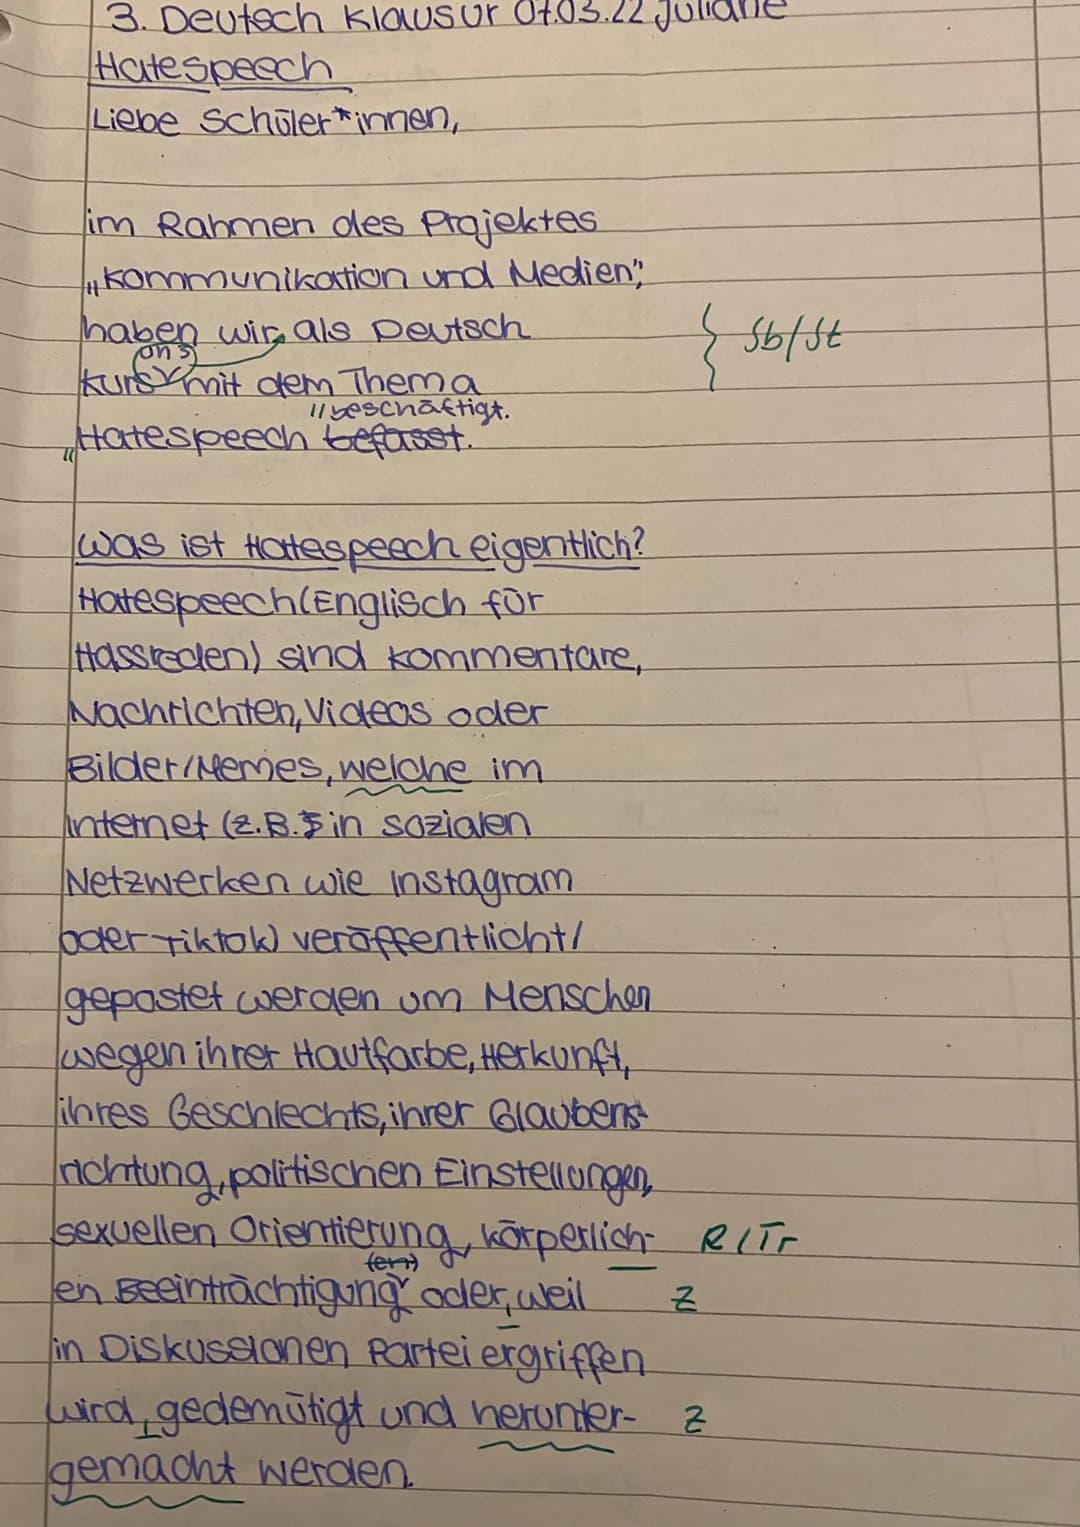 3. Deutsch Klausur 07.03.22 Juliane
Hatespeech
Liebe Schüler*innen,
im Rahmen des Projektes
„Kommunikation und Medien“,
haben wir als Deutsch
uns
kurs mit dem Thema
} Sb/St
"beschäftigt.
"Hatespeech befasst.
Was ist Hatespeech eigentlich?
Hatespeech (Englisch für
Hassreden) sind Kommentare,
Nachrichten, Videos oder
Bilder/Memes, welche im
Internet (z.B. in sozialen
Netzwerken wie Instagram
oder Tiktok) veröffentlicht/
gepostet werden um Menschen
wegen ihrer Hautfarbe, Herkunft,
ihres Geschlechts, ihrer Glaubens-
richtung, politischen Einstellungen,
sexuellen Orientierung, körperlich- R/Tr
(en)
en Beeinträchtigung oder, weil Z
in Diskussionen Partei ergriffen
wird, gedemütigt und herunter- Z
gemacht werden.